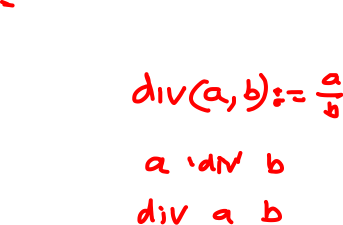 div(a,b):= a/b
a 'div' b
div a b